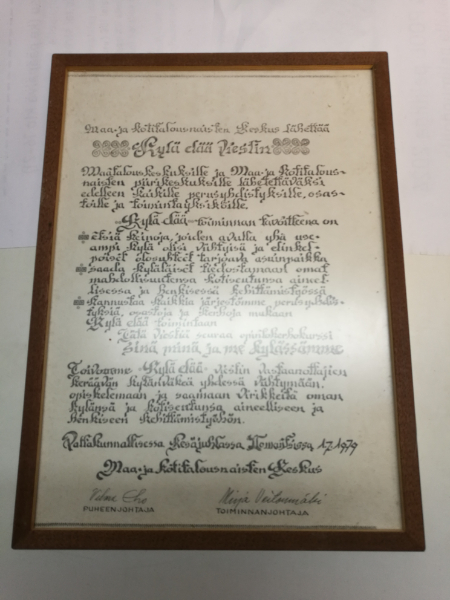 Maa-ja Kotitalousnaisten Keskus lähettää
Kylä elää Viestin
Maatalouskeskuksille ja Maa-ja Kotitalous-
naisten piirikeskuksille lähetettäväksi
edelleen kaikille perusyhdistyksille, osas-
toille ja toimintayksiköille.
Kylä elää-toiminnan tavoitteena on
etsiä keinoja, joiden avulla yhä use-
ampi kylä olisi viihtyisä ja elinkel-
poiset olosuhteet tarjoava asuinpaikka
saada kyläläiset tiedostamaan omat
mahdollisuutensa kotiseutunsa aineel-
lisessa ja henkisessä kehittämistyössä
kannustaa kaikkia järjestömme perusyhdis-
tyksiä, osastoja ja kerhoja mukaan
Kylä elää toimintaan
Tätä viestiä seuraa opintokerhokurssi
Sinä minä ja me kylässämme
Toivomme Kylä elää viestin vastaanottajien
keräävän kylänväkeä yhdessä viihtymään,
opiskelemaan ja saamaan virikkeitä oman
kylänsä ja kotiseutunsa aineelliseen ja
henkiseen kehittämistyöhön.
Valtakunnallisessa Kesäjuhlassa 1.7.1979
Maa-ja Kotitalousnaisten Keskus
PUHEENJOHTAJA TOIMINNANJOHTAJA